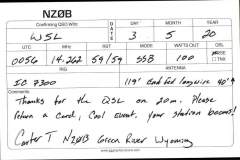 NZØB
Confirming QSO With
DATE
DAY MONTH YEAR
WSL 3 5 20
UTC MHz RST MODE WATTS OUT QSL
0056 14.262 59/59 SSB 100
TNX
RIG ANTENNA
IC 7300 119' End Fed longwire 40'
Comments
Thanks for the QSL on 20m. Please
return a card, Cool event. Your station booms!
Carter T NZØB Green River Wyoming